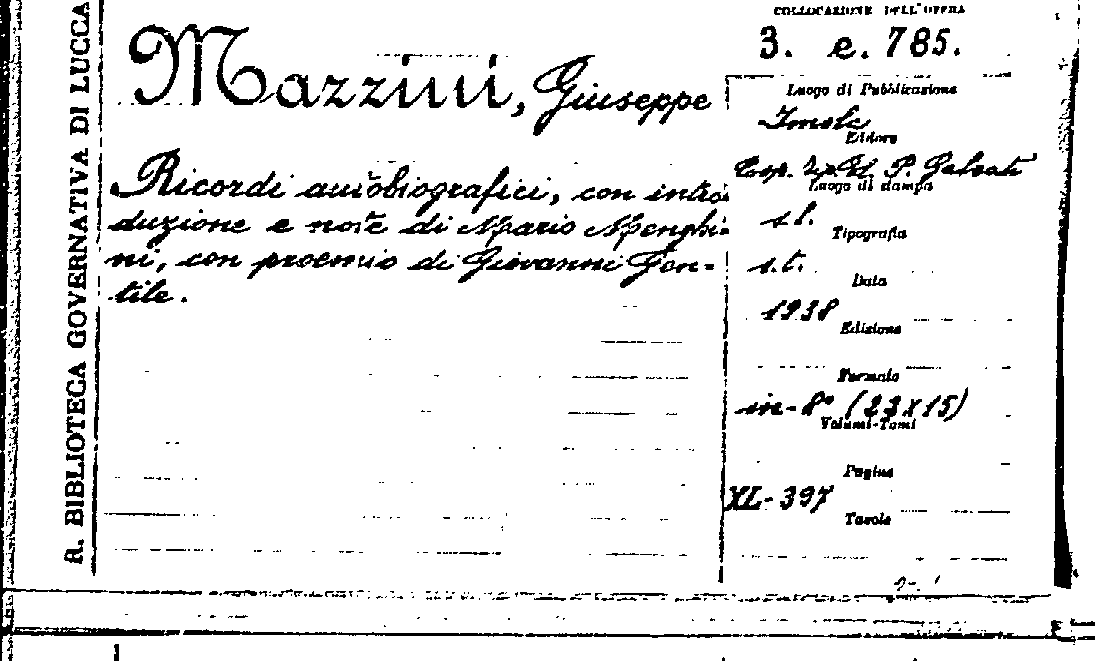 R. BIBLIOTECA GOVERNATIVA DI LUCCA
Mazzini, Giuseppe
Ricordi autobiografici, con intro-
duzione e note di Mario Menghi-
ni, con proemio di Giovanni Gen-
tile.
COLLOCAZIONE DELL'OPERA
3. e. 785.
Luogo di Pubblicazione
Imola
Editore
Coop. Tip. Ed. P. Galeati
Luogo di stampa
s.l.
Tipografia
s.t.
Data
1938
Edizione
Formato
in-8° (23x15)
Volumi-Tomi
Pagine
XL-397
Tavole